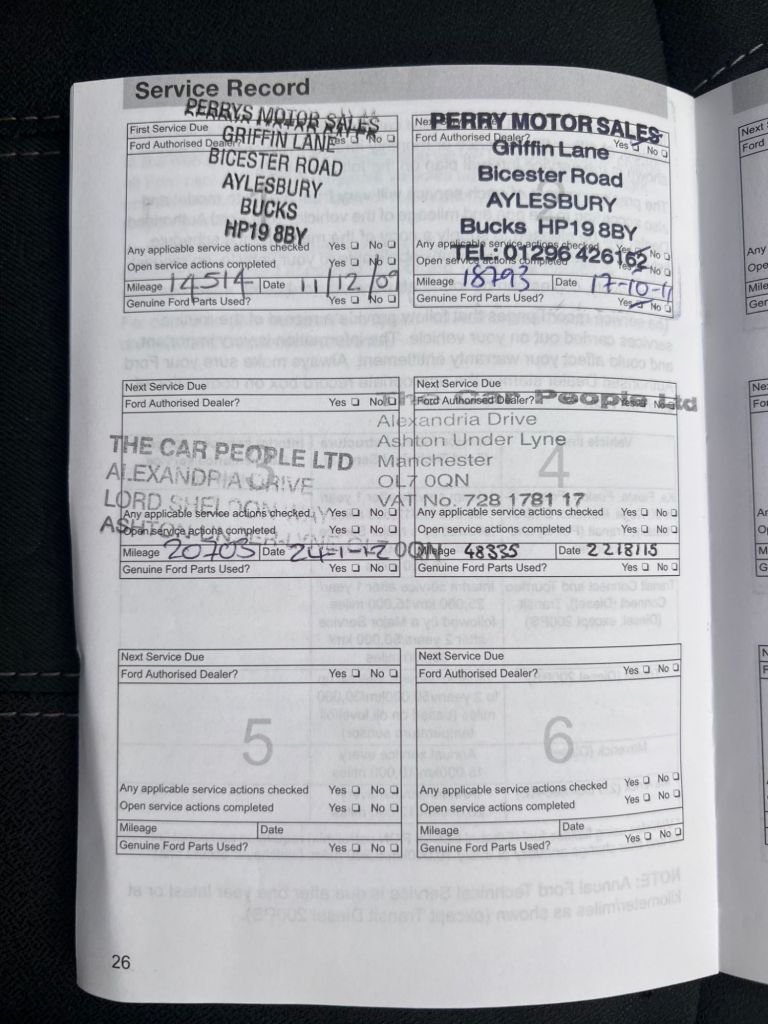 Service Record
First Service Due
Ford Authorised Dealer? Yes No
PERRYS MOTOR SALES
GRIFFIN LANE
BICESTER ROAD
AYLESBURY
BUCKS
HP19 8BY
Any applicable service actions checked Yes No
Open service actions completed Yes No
Mileage 14514 Date 11/12/09
Genuine Ford Parts Used? Yes No
Next Service Due
Ford Authorised Dealer? Yes No
PERRY MOTOR SALES
Griffin Lane
Bicester Road
AYLESBURY
Bucks HP19 8BY
TEL: 01296 426162
Any applicable service actions checked Yes No
Open service actions completed Yes No
Mileage 18793 Date 17-10-11
Genuine Ford Parts Used? Yes No
Next Service Due
Ford Authorised Dealer? Yes No
3
THE CAR PEOPLE LTD
ALEXANDRIA DRIVE
LORD SHELDON WAY
ASHTON-UNDER-LYNE OL7 0QN
Any applicable service actions checked Yes No
Open service actions completed Yes No
Mileage 20703 Date 24-1-12
Genuine Ford Parts Used? Yes No
Next Service Due
Ford Authorised Dealer? Yes No
4
Car People Ltd
Alexandria Drive
Ashton Under Lyne
Manchester
OL7 0QN
VAT No. 728 1781 17
Any applicable service actions checked Yes No
Open service actions completed Yes No
Mileage 48335 Date 2218115
Genuine Ford Parts Used? Yes No
Next Service Due
Ford Authorised Dealer? Yes No
5
Any applicable service actions checked Yes No
Open service actions completed Yes No
Mileage Date
Genuine Ford Parts Used? Yes No
Next Service Due
Ford Authorised Dealer? Yes No
6
Any applicable service actions checked Yes No
Open service actions completed Yes No
Mileage Date
Genuine Ford Parts Used? Yes No
26